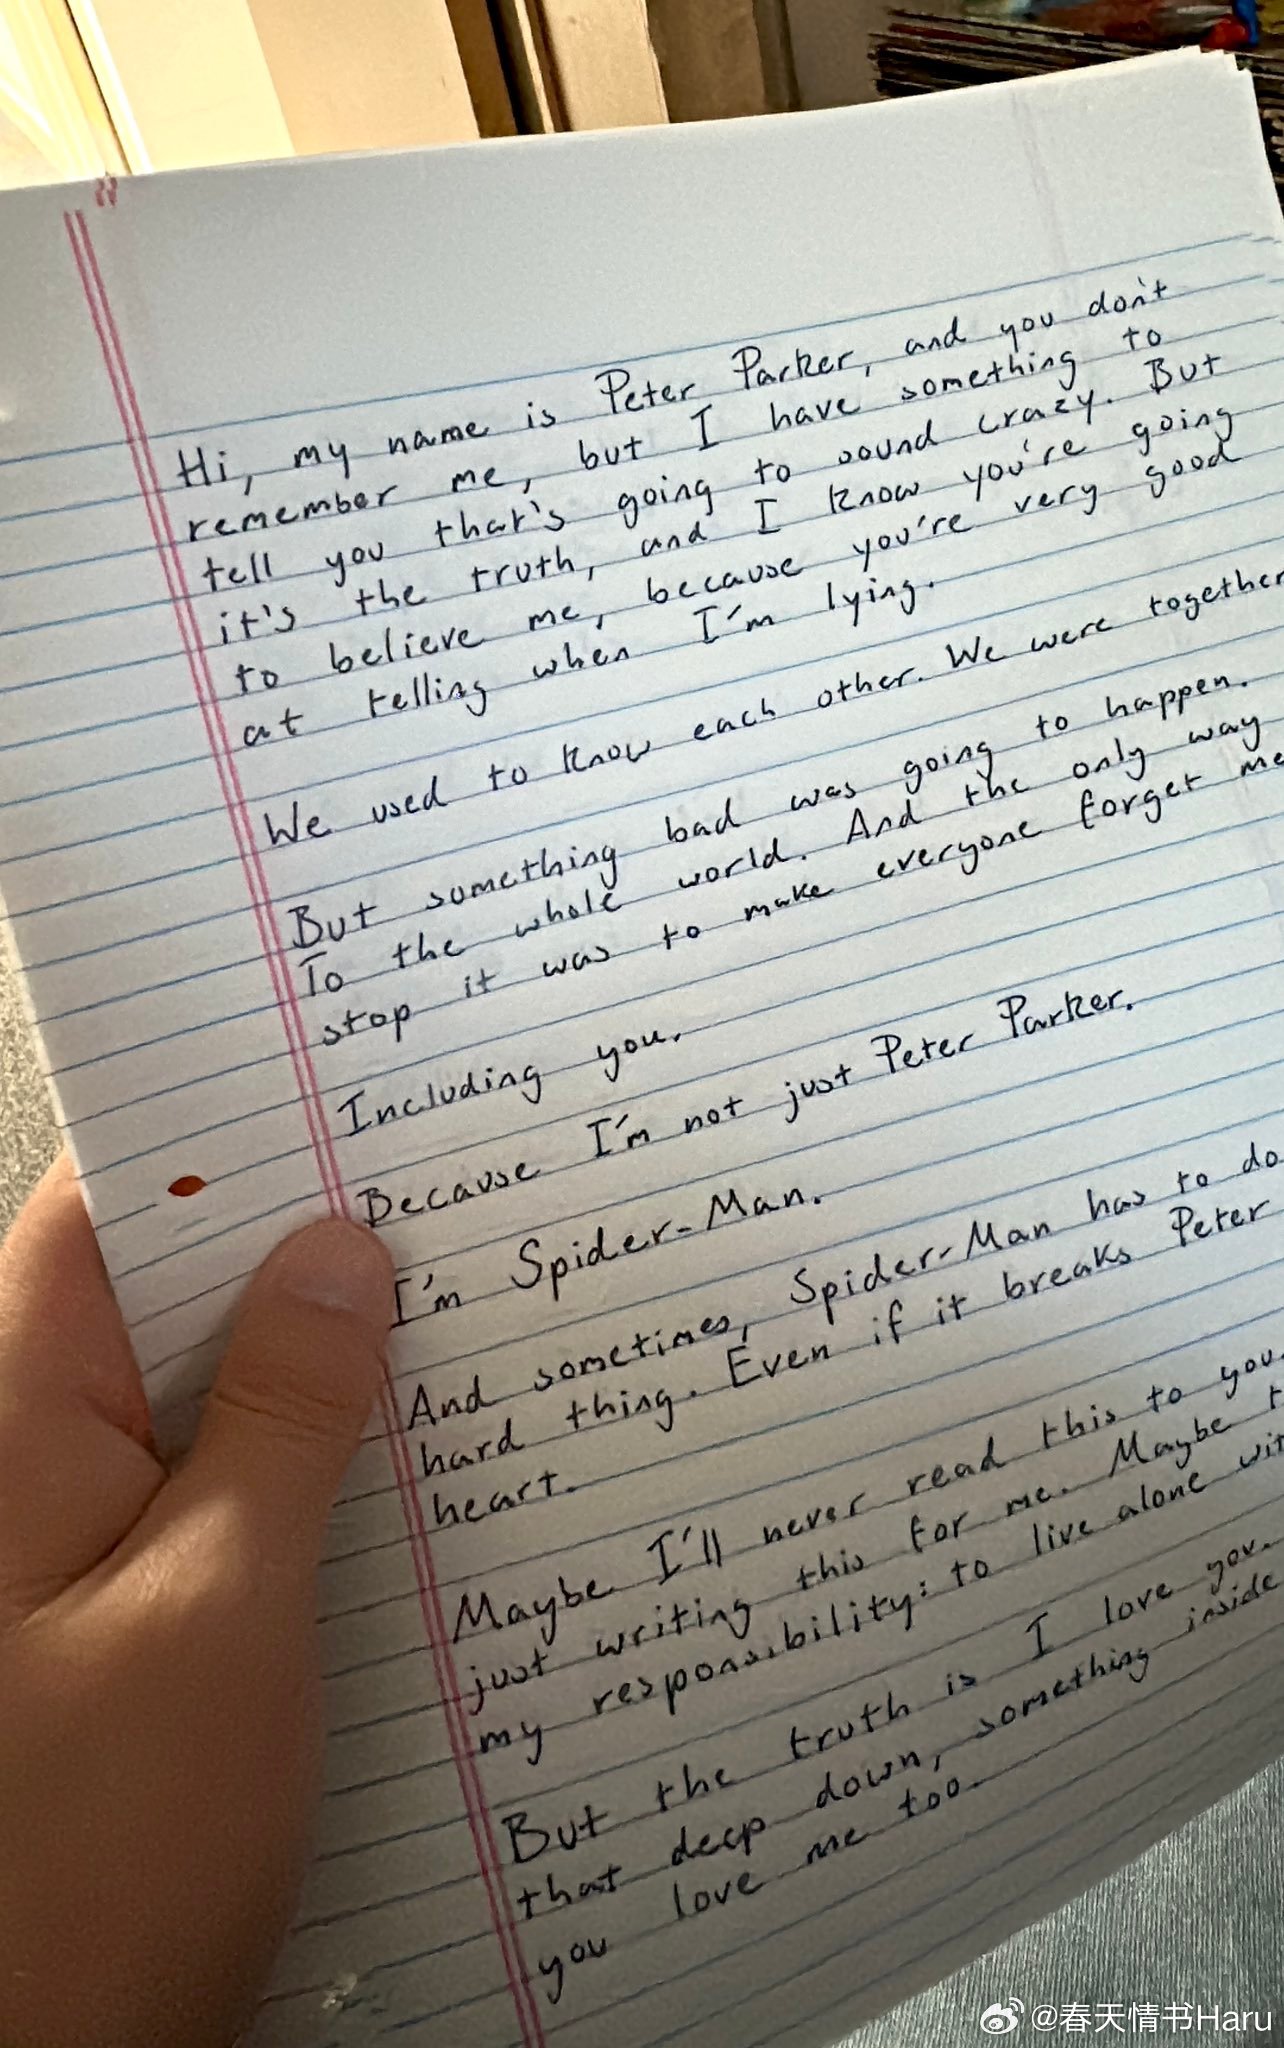 Hi, my name is Peter Parker, and you don't
remember me, but I have something to
tell you that's going to sound crazy. But
it's the truth, and I know you're going
to believe me, because you're very good
at telling when I'm lying.
We used to know each other. We were together
But something bad was going to happen.
To the whole world. And the only way
stop it was to make everyone forget me
Including you.
Because I'm not just Peter Parker.
I'm Spider-Man.
And sometimes, Spider-Man has to do
hard thing. Even if it breaks Peter
heart.
Maybe I'll never read this to you.
just writing this for me. Maybe
my responsibility: to live alone
But the truth is I love you.
that deep down, something inside
you love me too.
@春天情书Haru